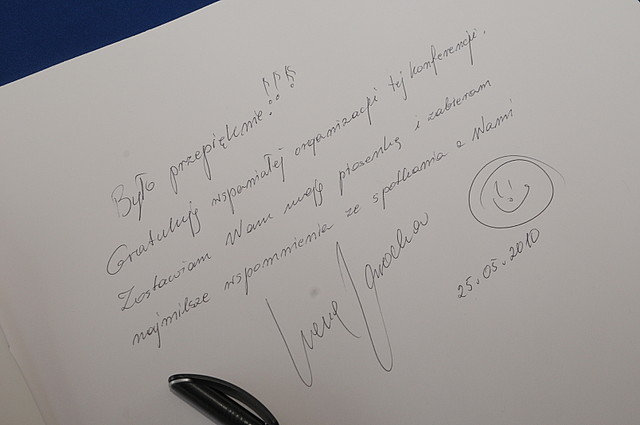 Było przepięknie!!!
Gratuluję wspaniałej organizacji tej konferencji.
Zostawiam Wam moją piosenkę i zabieram
najmilsze wspomnienia ze spotkania z Wami
Irena
25.05.2010